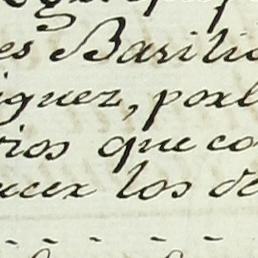 es Basilio
iguez, por l
rios que co
ucer los de